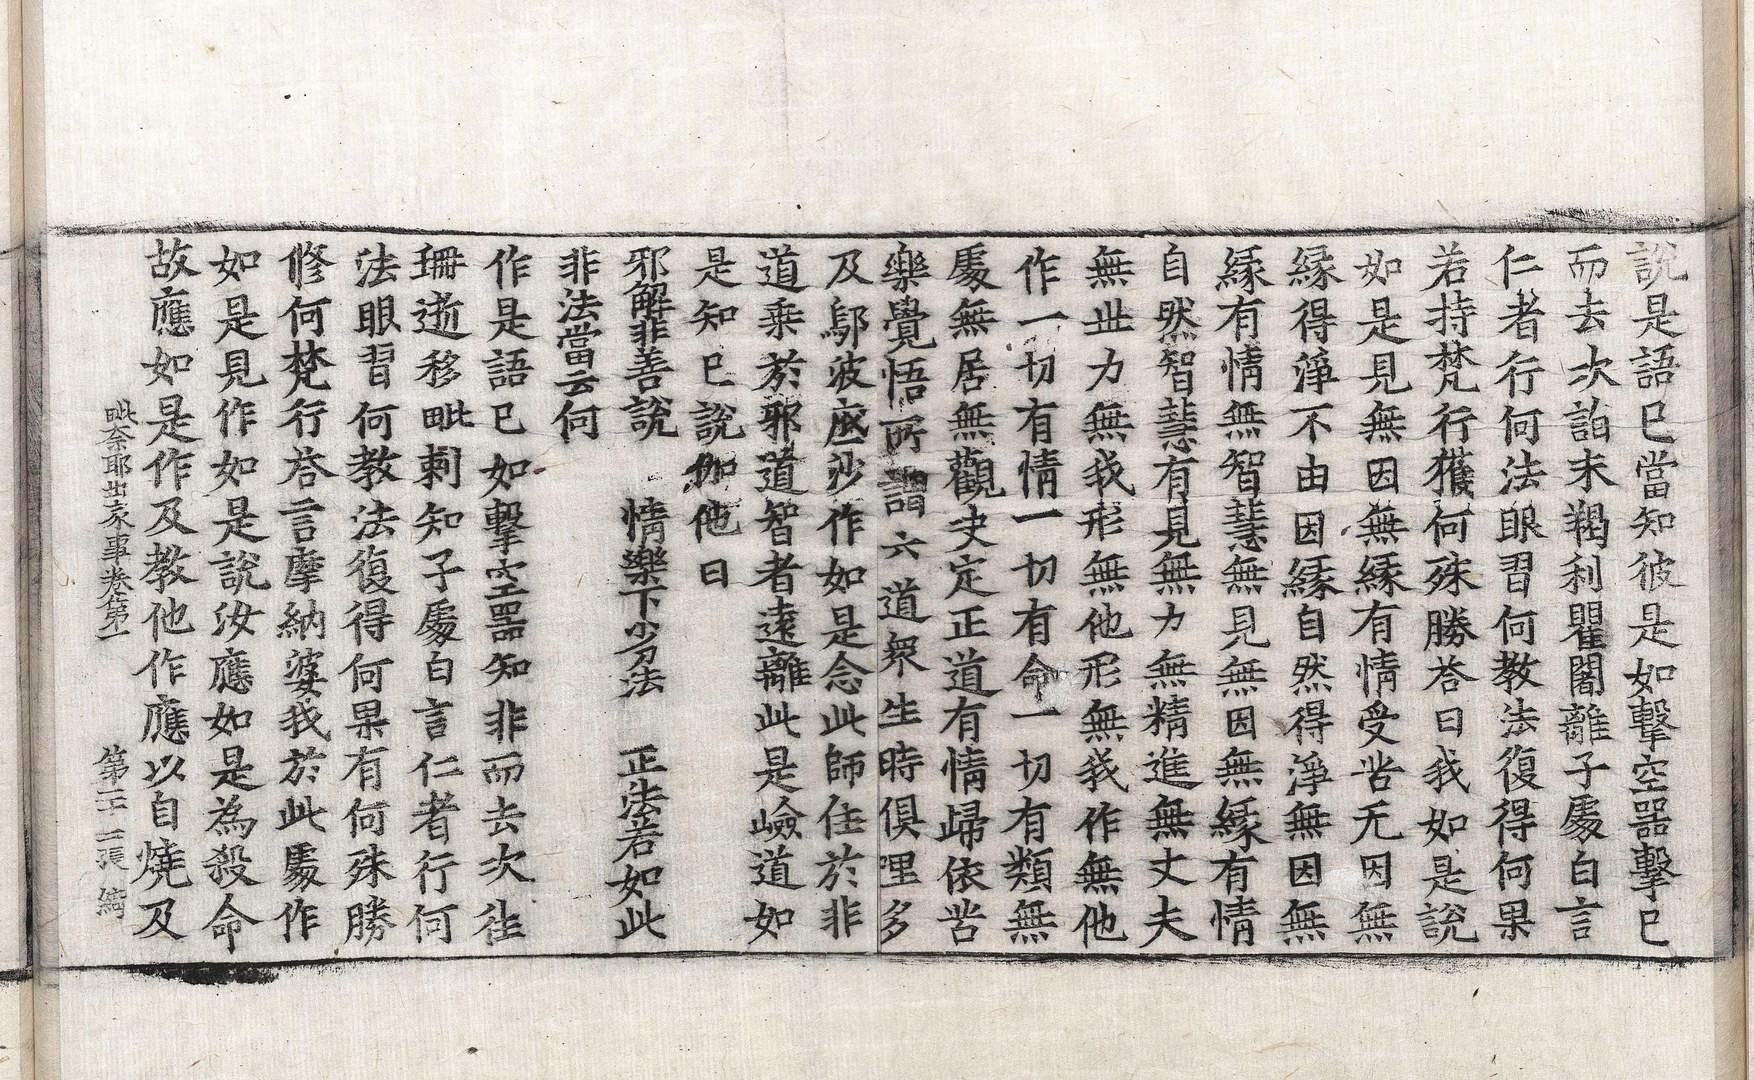 說是語已當知彼是如擊空器擊已
而去次詣末羯利瞿闍離子處白言
仁者行何法眼習何教法復得何果
若持梵行獲何殊勝荅曰我如是說
如是見無因無緣有情受苦无因無
緣得淨不由因緣自然得淨無因無
緣有情無智慧無見無因無緣有情
自然智慧有見無力無精進無丈夫
無世力無我形無他形無我作無他
作一切有情一切有命一切有類無
處無居無觀史定正道有情歸依苦
樂覺悟所謂六道衆生時俱哩多
及鄔波底沙作如是念此師住於非
道乗於邪道智者遠離此是嶮道如
是知已說伽他曰
邪解非善說　情樂下劣法　正法若如此
非法當云何
作是語已如擊空器知非而去次徃
珊逝移毗剌知子處白言仁者行何
法眼習何教法復得何果有何殊勝
修何梵行荅言摩納婆我於此處作
如是見作如是說汝應如是為殺命
故應如是作及教他作應以自燒及
毗奈耶出家事卷第一　第二十二張　綺